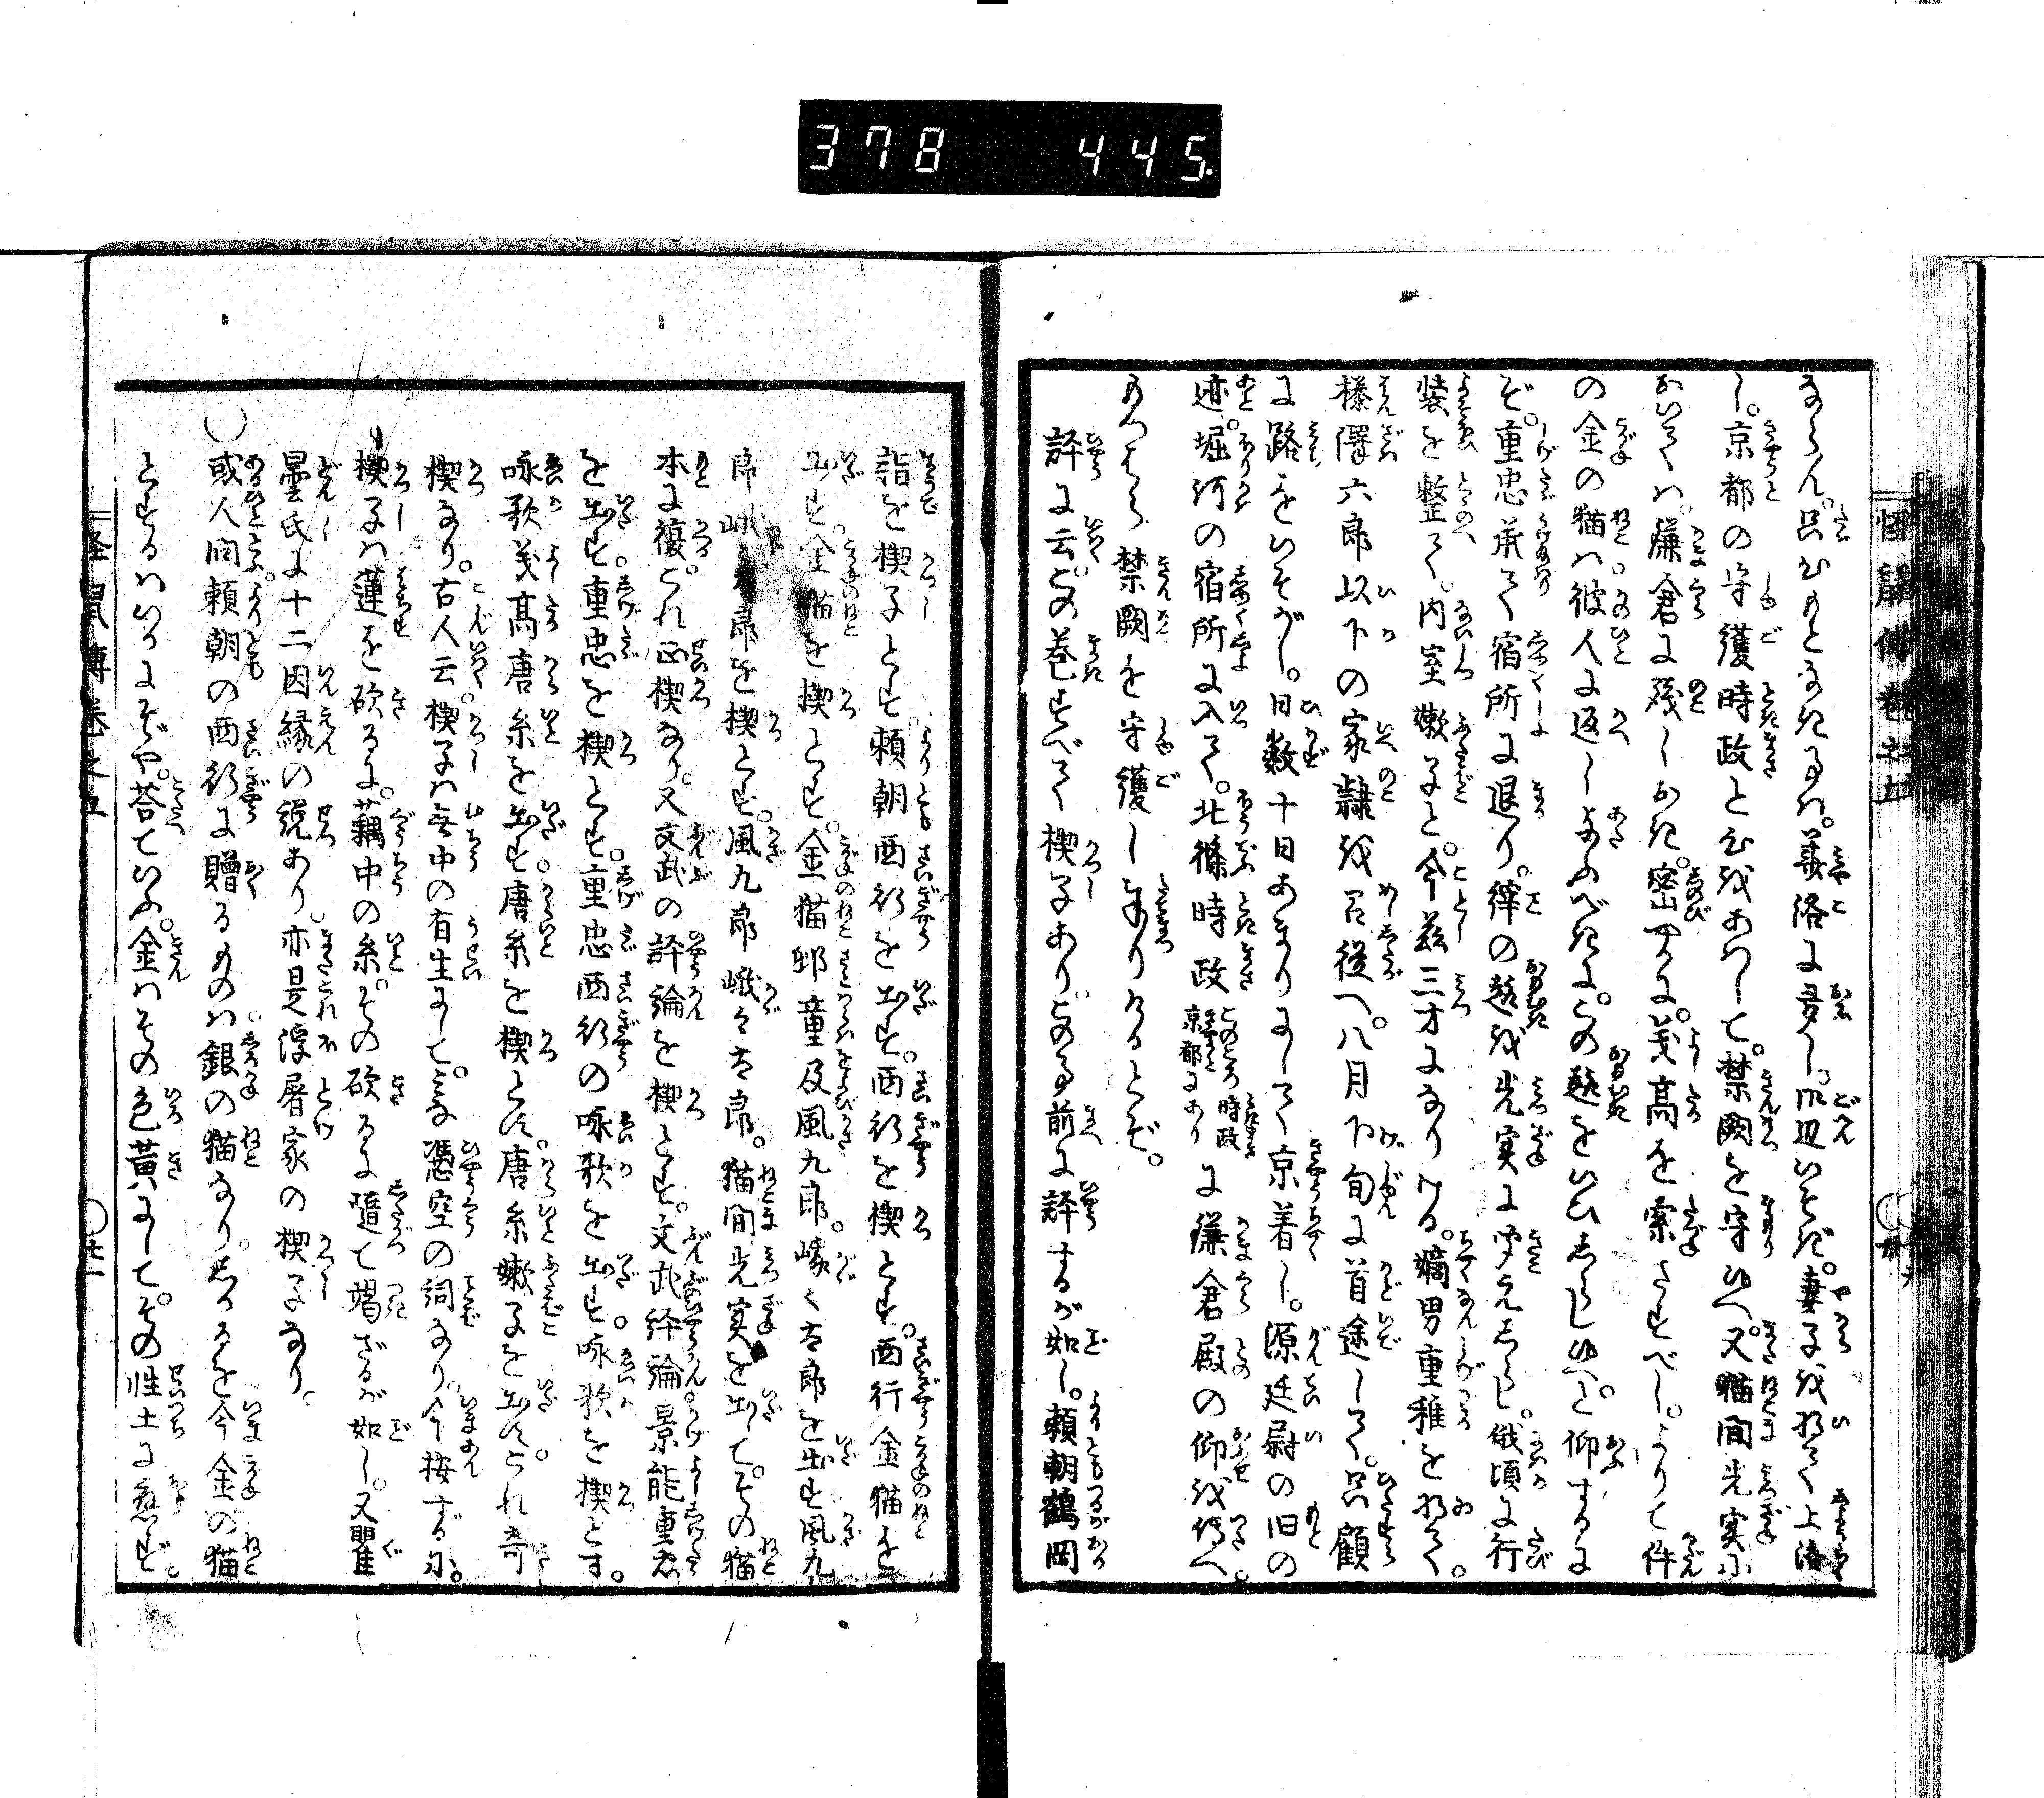 378 445.
なるらん。只むねとするは。華洛に多し。爾辺いそぎ。妻子を将て上洛
し。京都の守護時政と心をあはして。禁闕を守ゆへ。又猫間光実に
おいては。鎌倉に残しおき。密やかに。義高を索さすべし。よりて件
の金の猫は彼人に返しあたふべきに。この趣をいひしらしゆへと仰するに
ぞ。重忠承て宿所に退り。縡の趣を光実に聞えしらし。俄頃に行
装を整て。内室嫩子と。今茲三才になりける。嫡男重稚を将て。
榛澤六郎以下の家隷を召従へ。八月下旬に首途して。只顧
に路をいそがし。日数十日あまりにして京着し。源廷尉の旧の
迹。堀河の宿所に入て。北條時政
このころ時政
京都にあり
に鎌倉殿の仰を伝へ。
もろともに禁闕を守護し奉りけるとぞ。
評に云。この巻すべて楔子あり。この事前に評するが如し。頼朝鶴岡
詣を楔子とす。頼朝西行を出す。西行を楔とす。西行金猫を
出す。金猫を楔とす。金猫邨童及風九郎。峨々太郎を出す。風九
郎峨々太郎を楔とす。風九郎峨々太郎。猫間光実を出して。その猫
本に復る。これ正楔なり。又文武の評論を楔とす。文武評論景能重忠
を出す。重忠を楔とす。重忠西行の咏歌を出す。咏歌を楔とす。
咏歌義高唐糸を出す。唐糸を楔とす。唐糸嫩子を出す。これ奇
楔なり。古人云。楔子は無中の有生にして。みな憑空の詞なり。今按ずるに。
楔子は蓮を砍るに。藕中の糸。その砍るに随て竭ざるが如し。又瞿
曇氏に十二因縁の説あり。亦是浮屠家の楔子なり。
○或人問頼朝の西行に贈るものは銀の猫なり。しかるを今金の猫
とするはいかにぞや。答ていふ。金はその色黄にして。その性土に応ず。
怪鼠傳巻之五